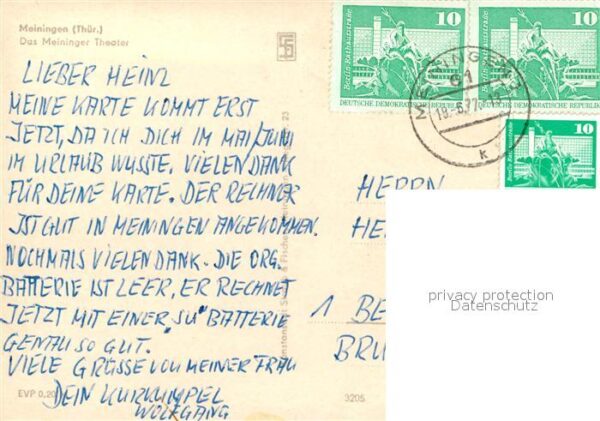 Meiningen (Thür.)
Das Meininger Theater
LIEBER HEINZ
MEINE KARTE KOMMT ERST
JETZT, DA ICH DICH IM MAI/JUNI
IM URLAUB WUSSTE. VIELEN DANK
FÜR DEINE KARTE. DER RECHNER
IST GUT IN MEININGEN ANGEKOMMEN.
NOCHMALS VIELEN DANK. DIE ORG.
BATTERIE IST LEER, ER RECHNET
JETZT MIT EINER „SU" BATTERIE
GENAU SO GUT.
VIELE GRÜSSE VON MEINER FRAU
DEIN KURKUMPEL
WOLFGANG
EVP 0,20
3205
10
Berlin Rathausstraße
DEUTSCHE DEMOKRATISCHE REPUBLIK
10
Berlin Rathausstraße
DEUTSCHE DEMOKRATISCHE REPUBLIK
MEININGEN
61
k
10
Berlin Rathausstraße
HERRN
HE
1 BE
BRU
privacy protection
Datenschutz